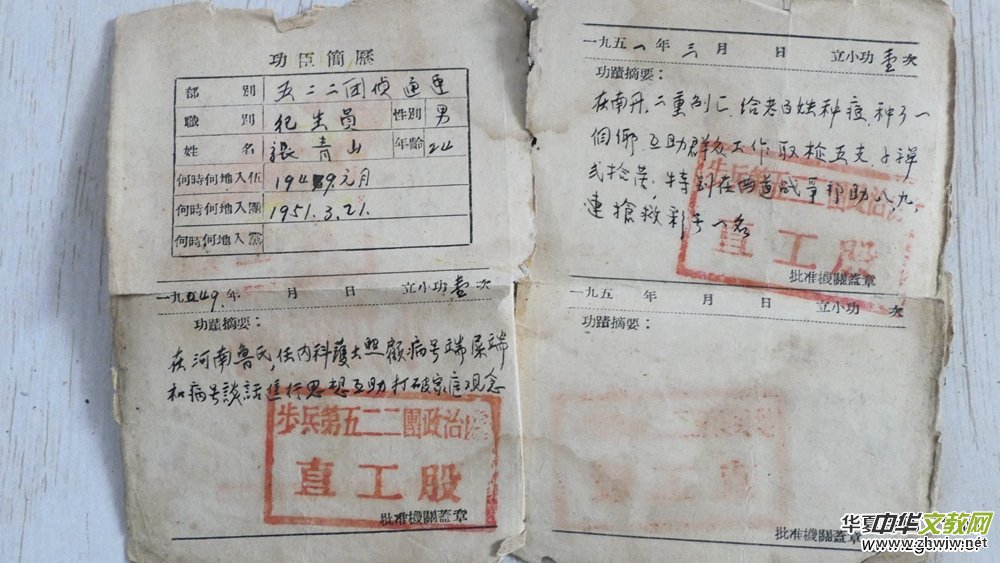 功臣簡歷
部別 五二二团偵通連
職別 纪生員 性别 男
姓名 張青山 年齡 24
何時何地入伍 1949元月
何時何地入團 1951.3.21.
何時何地入黨
一九五一年三月 日 立小功壹次
功蹟摘要：
在南丹,二重别亡,给老百姓种痘,种了一
個鄉互助群众工作取枪五支子弹
弍拾发,特别在西道战爭帮助八九,
連搶救彩号一名
步兵第五二二團政治處
直工股
批准機關蓋章
一九49年 月 日 立小功壹次
功蹟摘要：
在河南鲁氏,任内科護士照顧病号端屎端
和病号談話進行思想互助打破家庭观念
步兵第五二二團政治處
直工股
批准機關蓋章
一九五 年 月 日 立小功 次
功蹟摘要：
批准機關蓋章
中华文教网
www.zhwjw.net